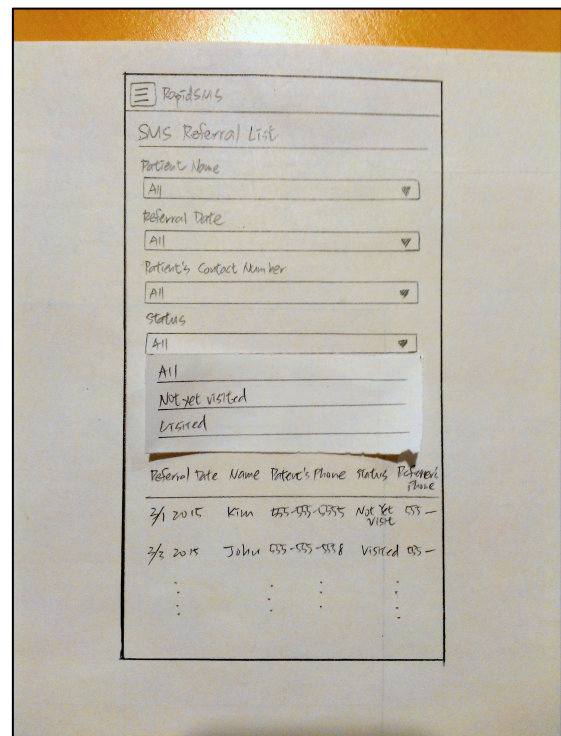 RapidSMS
SMS Referral List
Patient Name
All
Referral Date
All
Patient's Contact Number
All
Status
All
All
Not yet visited
Visited
Referral Date Name Patient's Phone Status Referrer's Phone
2/1 2015 Kim 555-555-5555 Not Yet Visit 555-
2/2 2015 John 555-555-5558 Visited 555-